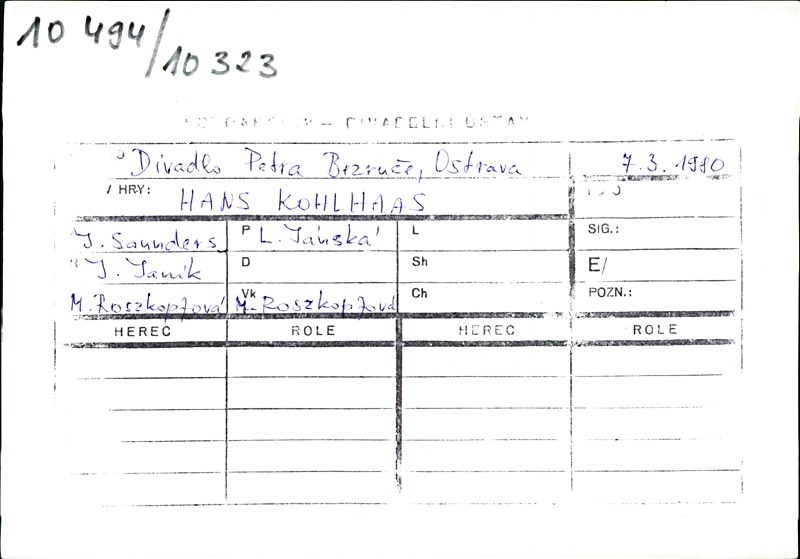 10 494/10 323
DIVADELNÍ ÚSTAV
Divadlo Petra Bezruče, Ostrava 7.3.1980
HRY: HANS KOHLHAAS
J. Saunders P L. Jánská L SIG.:
J. Janík D Sh E/
M. Roszkopfová Vk M. Roszkopfová Ch POZN.:
HEREC ROLE HEREC ROLE